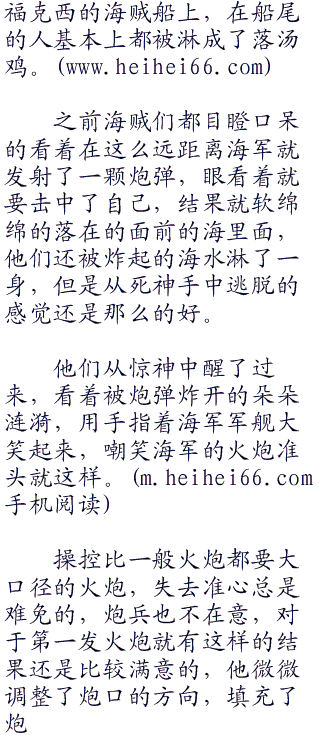 福克西的海贼船上，在船尾
的人基本上都被淋成了落汤
鸡。(www.heihei66.com)
之前海贼们都目瞪口呆
的看着在这么远距离海军就
发射了一颗炮弹，眼看着就
要击中了自己，结果就软绵
绵的落在的面前的海里面，
他们还被炸起的海水淋了一
身，但是从死神手中逃脱的
感觉还是那么的好。
他们从惊神中醒了过
来，看着被炮弹炸开的朵朵
涟漪，用手指着海军军舰大
笑起来，嘲笑海军的火炮准
头就这样。(m.heihei66.com
手机阅读)
操控比一般火炮都要大
口径的火炮，失去准心总是
难免的，炮兵也不在意，对
于第一发火炮就有这样的结
果还是比较满意的，他微微
调整了炮口的方向，填充了
炮